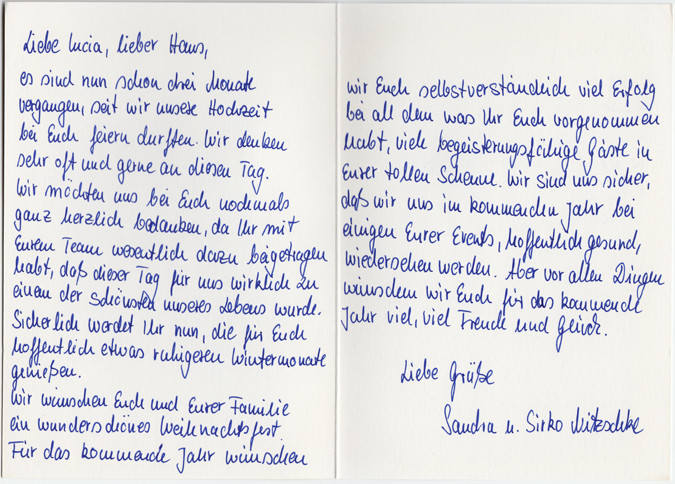 Liebe Lucia, lieber Hans,
es sind nun schon drei Monate
vergangen, seit wir unsere Hochzeit
bei Euch feiern durften. Wir denken
sehr oft und gerne an diesen Tag.
Wir möchten uns bei Euch nochmals
ganz herzlich bedanken, da Ihr mit
Eurem Team wesentlich dazu beigetragen
habt, daß dieser Tag für uns wirklich zu
einem der schönsten unseres Lebens wurde.
Sicherlich werdet Ihr nun, die für Euch
hoffentlich etwas ruhigeren Wintermonate
genießen.
Wir wünschen Euch und Eurer Familie
ein wunderschönes Weihnachtsfest.
Für das kommende Jahr wünschen
wir Euch selbstverständlich viel Erfolg
bei all dem was Ihr Euch vorgenommen
habt, viele begeisterungsfähige Gäste in
Eurer tollen Scheune. Wir sind uns sicher,
daß wir uns im kommenden Jahr bei
einigen Eurer Events, hoffentlich gesund,
wiedersehen werden. Aber vor allen Dingen
wünschen wir Euch für das kommende
Jahr viel, viel Freude und Glück.
Liebe Grüße
Sandra u. Sirko Nitzschke